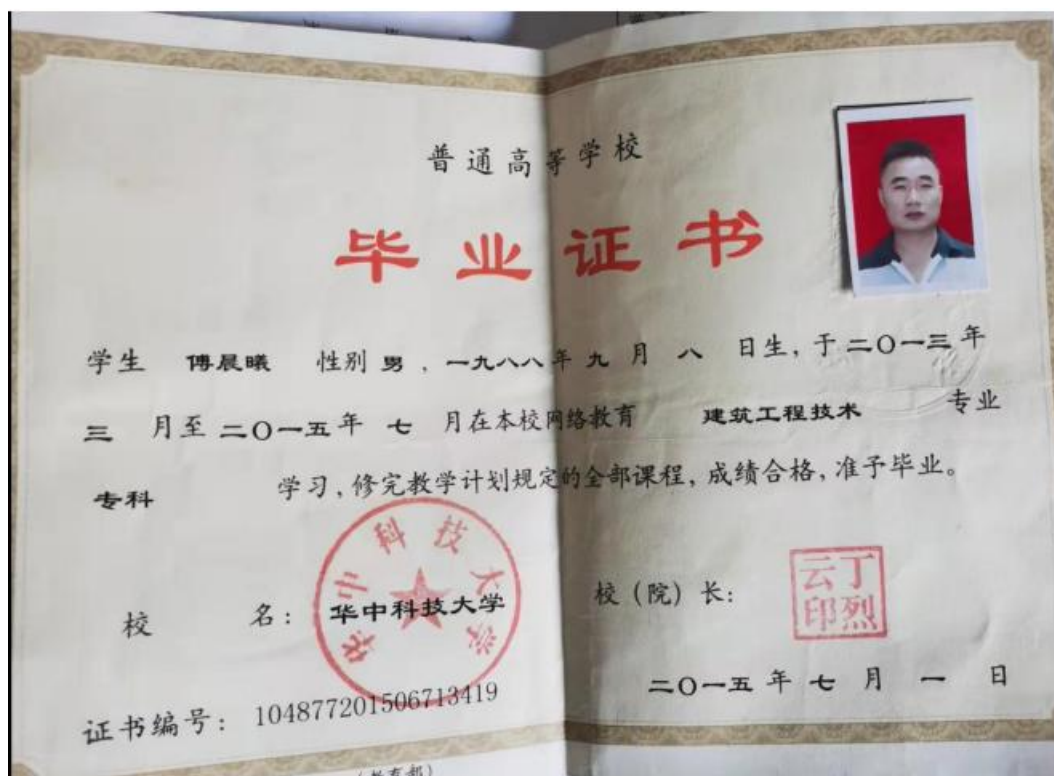 普通高等学校
毕业证书
学生 傅晨曦 性别 男 ，一九八八年 九 月 八 日生，于二〇一三年
三 月至 二〇一五年 七 月在本校网络教育 建筑工程技术 专业
专科 学习，修完教学计划规定的全部课程，成绩合格，准予毕业。
华中科技大学
校 名： 华中科技大学
校（院）长：
丁烈云印
二〇一五年 七 月 一 日
证书编号： 104877201506713419